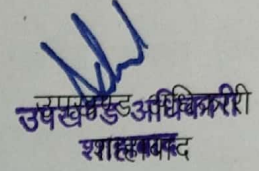 उपखण्ड अधिकारी
शाहाबाद